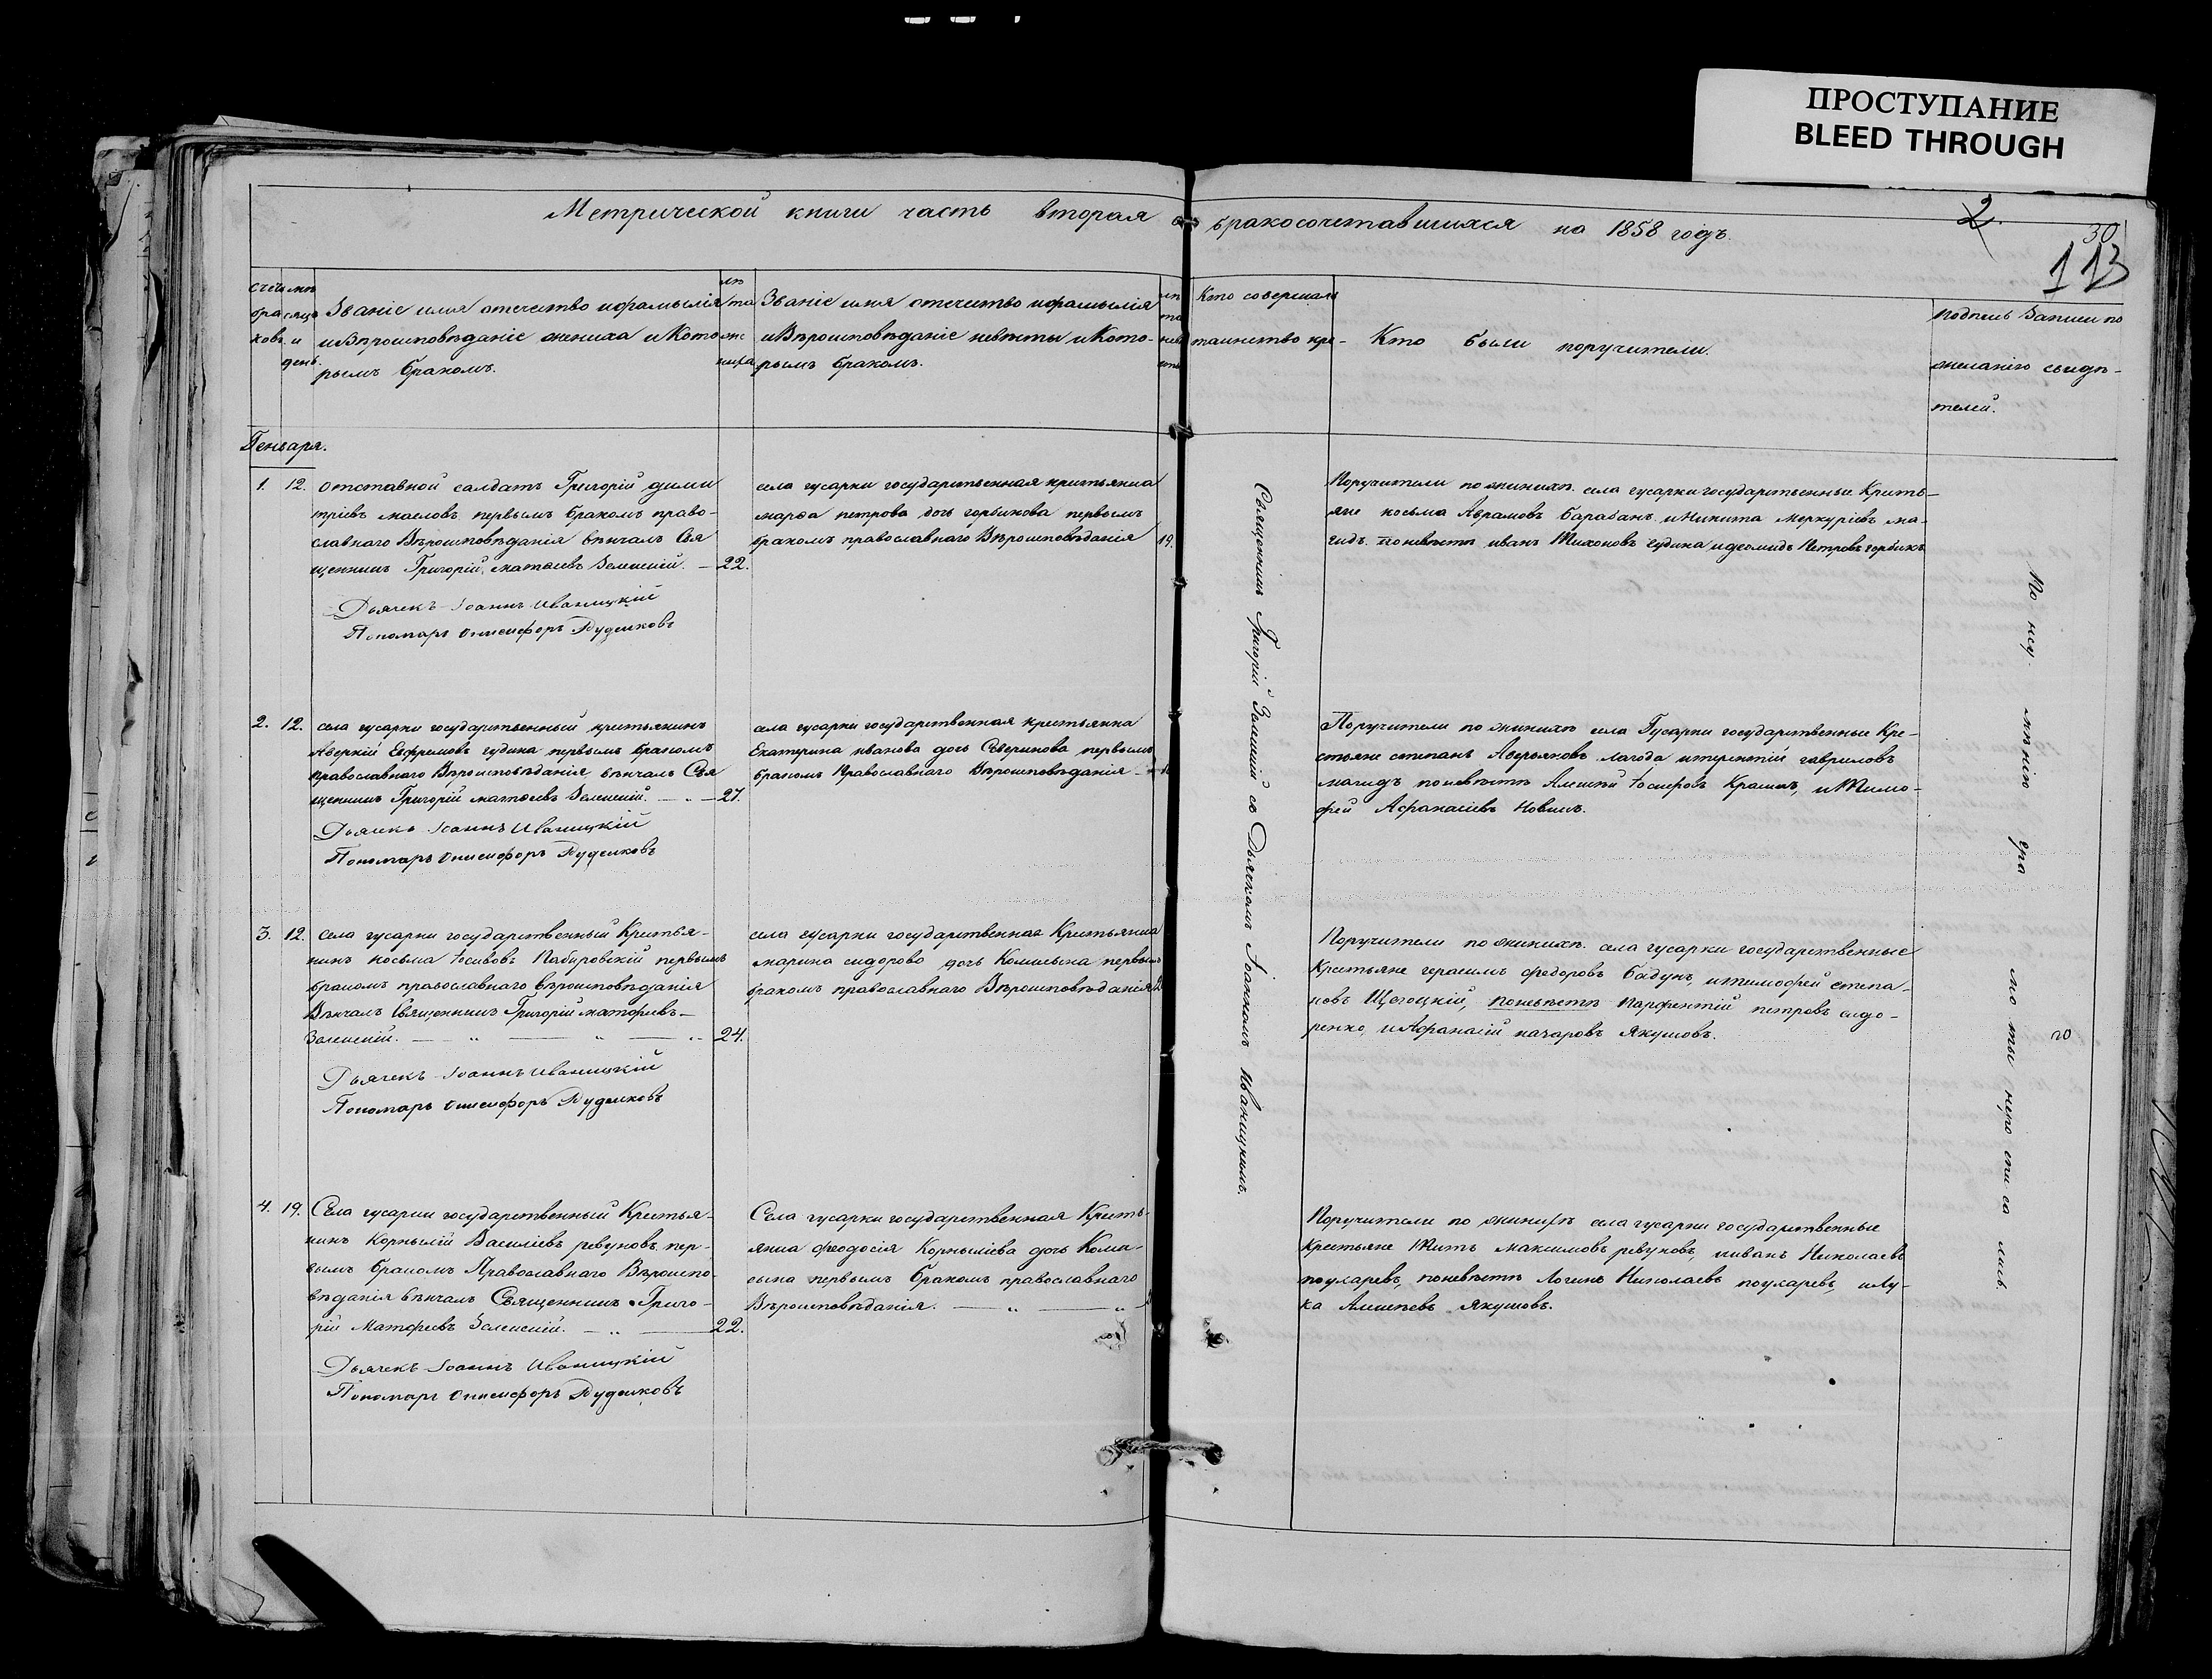 ПРОСТУПАНИЕ
BLEED THROUGH
Метрической книги часть вторая о бракосочетавшихся на 1858 годъ.
2.
30
113
Званіе имя отечество и фамылія
и Вѣроисповѣданіе жениха и Кото
рымъ бракомъ.
Званіе имя отечество и фамылія
и Вѣроисповѣданіе невѣсты и Кото-
рымъ бракомъ.
Кто совершалъ
таинство
Кто были поручители.
Подпись Записи по
желанію свидѣ-
телей.
Генваря.
1. 12. отставной салдатъ Григорій дими
тріевъ масловъ первымъ бракомъ право-
славнаго Вѣроисповѣданія вѣнчалъ Свя
щенникъ Григорій матѳеевъ Зеленскій. — 22.
Дьячекъ Іоаннъ Иваницкій
Пономарь Онисифоръ Дудниковъ
села гусарки государственная кристьянка
марѳа петрова дочь горбикова первымъ
бракомъ православнаго Вѣроисповѣданія 19.
Поручители по жинихѣ села гусарки государственные Кристь-
яне косьма Аврамовъ барабанъ и Никита меркуріевъ ма-
гидъ. по невѣстѣ иванъ Тихоновъ гудина и деомидъ Петровъ горбикъ
2. 12. села гусарки государственный кристьянинъ
Аверкій Евфремовъ гудина первымъ бракомъ
православнаго Вѣроисповѣданія вѣнчалъ Свя
щенникъ Григорій матѳеевъ Зеленскій. — „ — 27.
Дьячекъ Іоаннъ Иваницкій
Пономарь Онисифоръ Дудниковъ
села гусарки государственная кристьянка
Екатерина иванова дочь Северинова первымъ
бракомъ Православнаго Вѣроисповѣданія
Поручители по жинихѣ села Гусарки государственные Кре-
стьяне степанъ Аверьяновъ лагода и терентій гавриловъ
магидъ по невѣстѣ Алексѣй Іосифовъ и Тимо-
фей Афанасіевъ Новикъ.
3. 12. села гусарки государственный Кристья-
нинъ косьма Іосивовъ Пабировскій первымъ
бракомъ православнаго вѣроисповѣданія
Вѣнчалъ Священникъ Григорій матфеевъ —
Зеленскій. — „ — „ — „ 24.
Дьячекъ Іоаннъ Иваницкій
Пономарь Онисифоръ Дудниковъ
села гусарки государственная Кристьянка
марина сидорово дочь первымъ
бракомъ православнаго Вѣроисповѣданія
Поручители по жинихѣ села гусарки государственные
Кристьяне герасимъ федоровъ бадунъ, и тимофей степа-
новъ Щегоцкій, по невѣстѣ Парфентій петровъ сидо-
ренко, и Афанасій назаровъ Якушовъ.
4. 19. Села гусарки государственный Кристья-
нинъ Корнылій Василіевъ ревуновъ пер-
вымъ бракомъ Православнаго Вѣроиспо-
вѣданія вѣнчалъ Священникъ Григо-
рій Матфеевъ Зеленскій. — „ — 22.
Дьячекъ Іоаннъ Иваницкій
Пономарь Онисифоръ Дудниковъ
Села гусарки государственная Кристь-
янка феодосія Корныліева дочь
первымъ бракомъ православнаго
Вѣроисповѣданія. — „ — „
Поручители по жинихѣ села гусарки государственные
Кристьяне Титъ максимовъ ревуновъ, и иванъ Николаевъ
по невѣстѣ Логинъ Николаевъ и Лу-
ка Алексѣевъ Якушовъ.
Священникъ Григорій Зеленскій со Дьячкомъ Іоанномъ Иваницкимъ.
По неумѣнію грамоты неросписались.